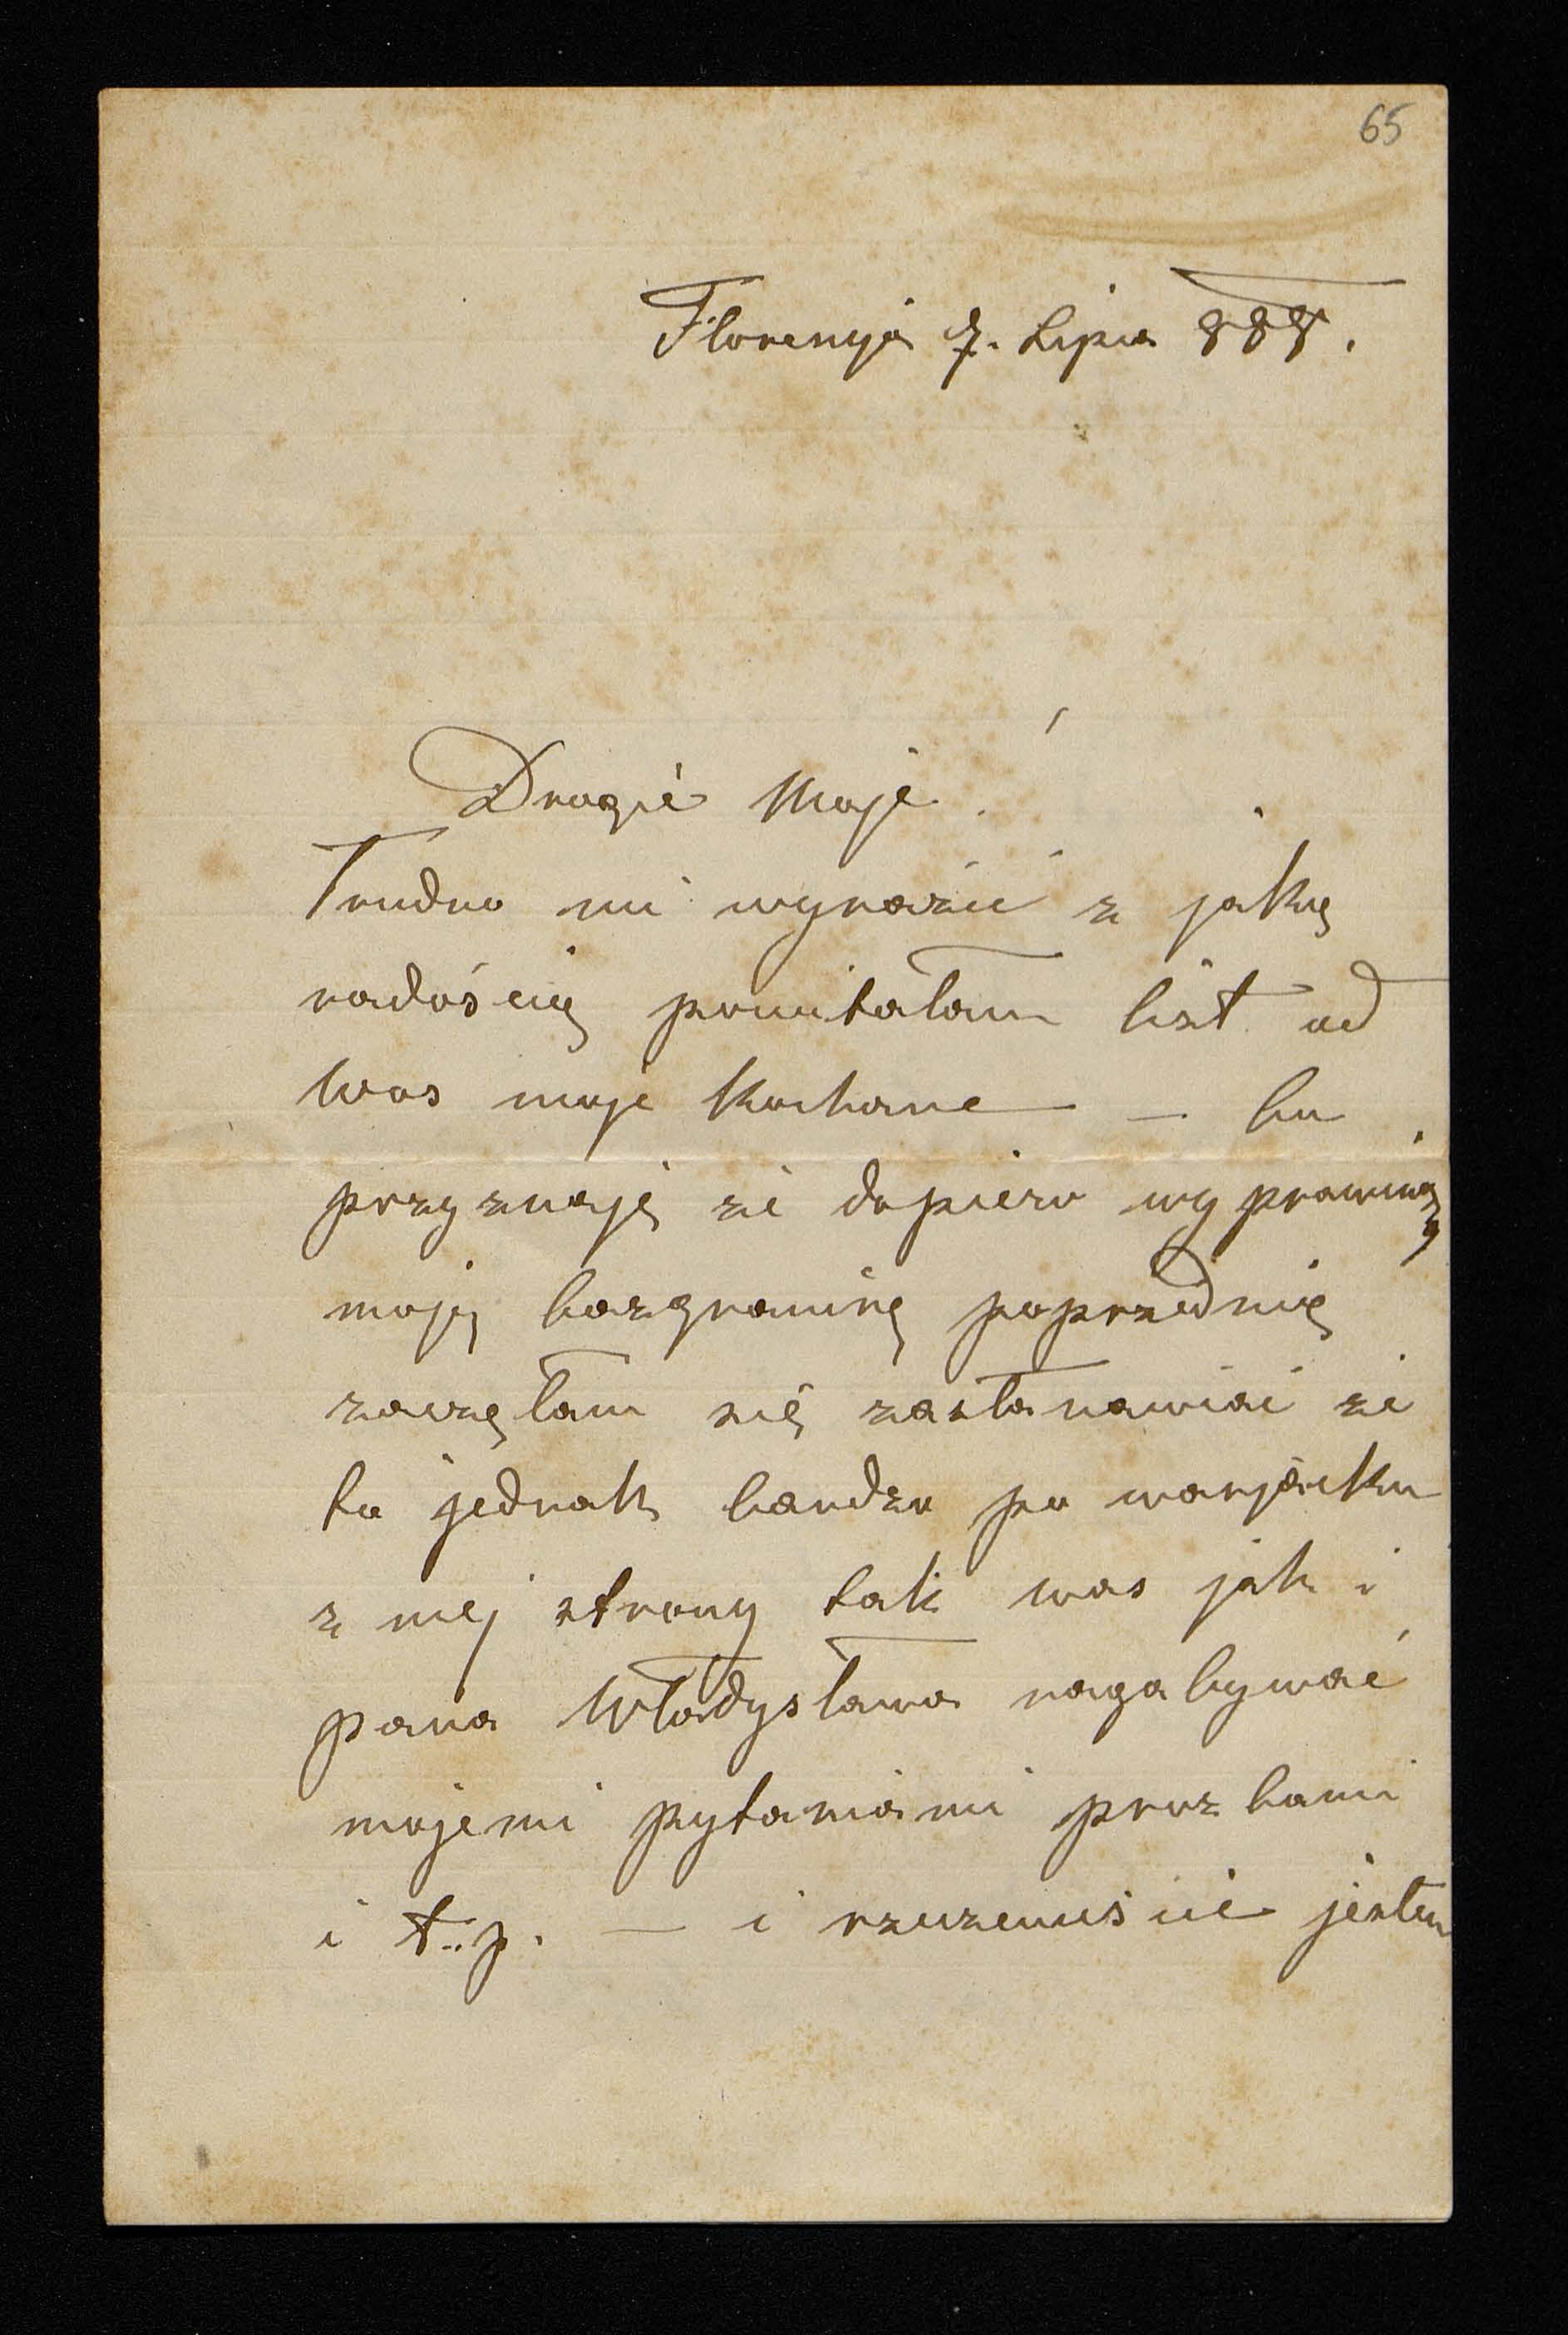 65
Florencyja 7. Lipca 888.
Drogie Moje!
Trudno mi wyrazić z jaką
radością powitałam list od
Was moje Kochane — bo
przyznaję że dopiero wyprawiwszy
moję bazgraninę poprzednię
zaczęłam się zastanawiać że
to jednak bardzo po warjacku
z mej strony tak was jak i
pana Władysława nagabywać
mojemi pytaniami prozbami
i t.p. — i rzeczewiście jestem